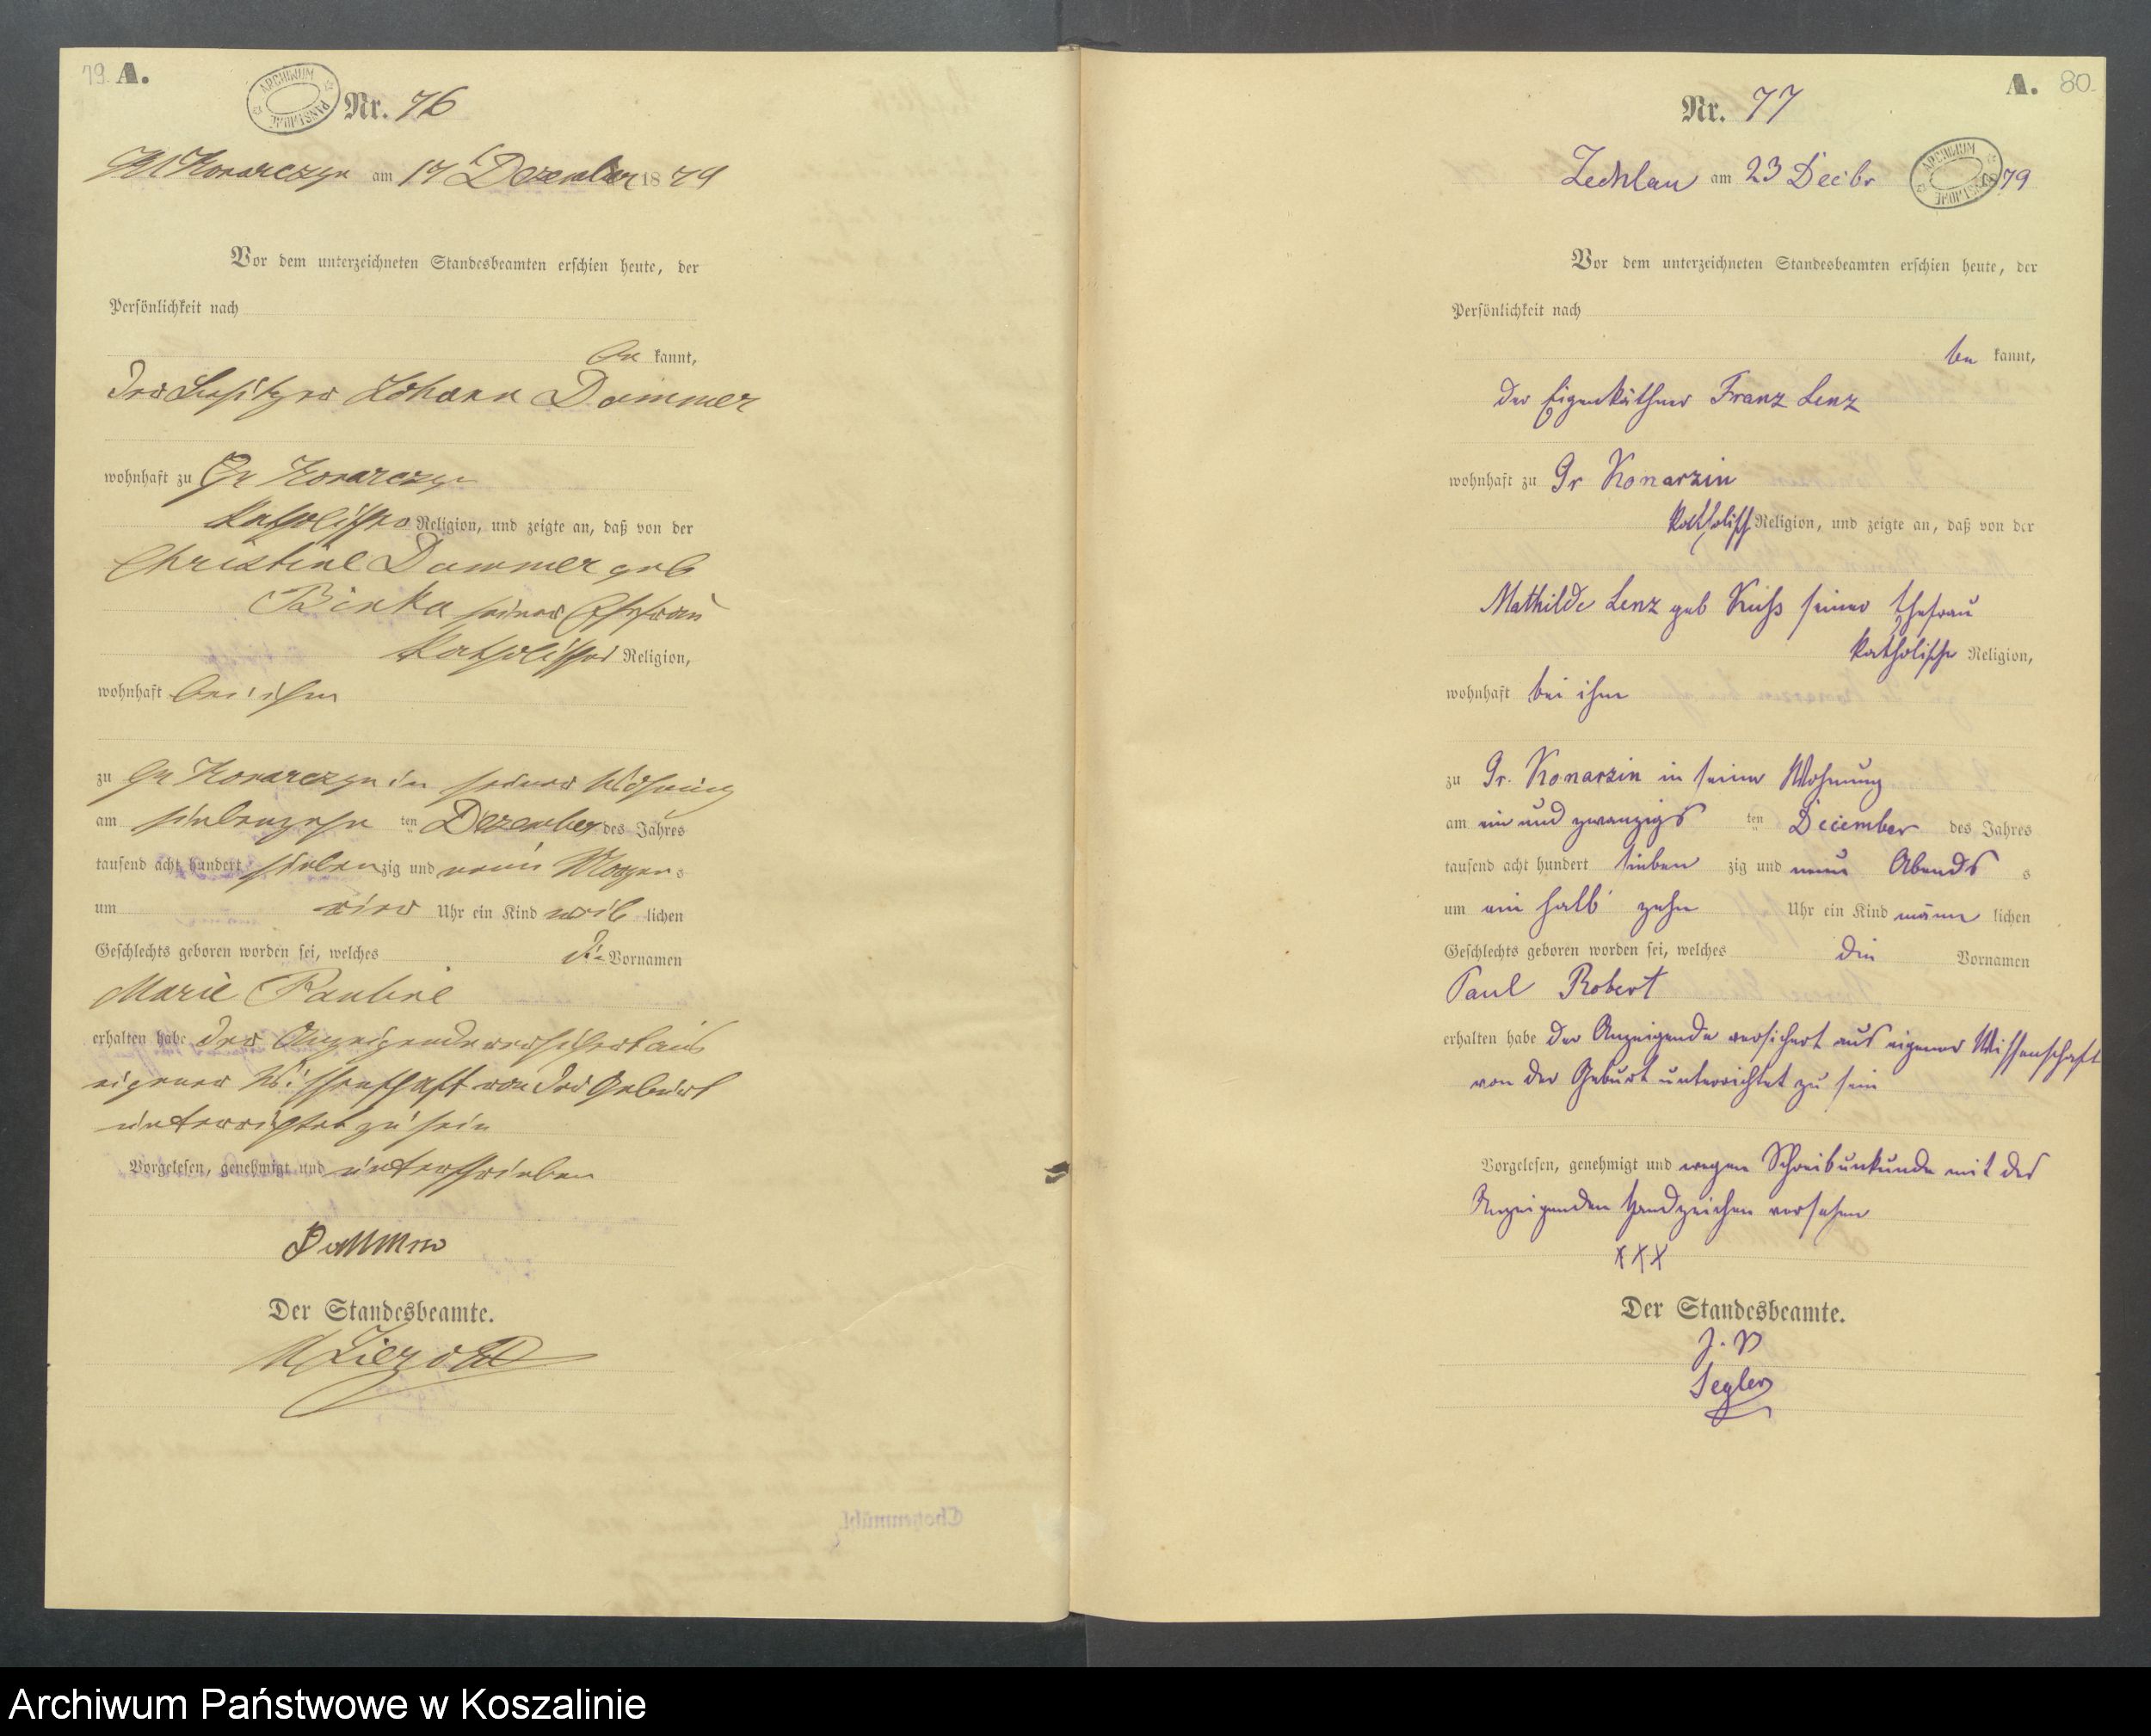 79. A.
ARCHIWUM PAŃSTWOWE
Nr. 76
Kl Konarczyn am 17 Dezember 1879
Vor dem unterzeichneten Standesbeamten erschien heute, der
Persönlichkeit nach
be kannt,
der Besitzer Johann Dammer
wohnhaft zu Gr Konarczyn
katholischer Religion, und zeigte an, daß von der
Christine Dammer geb
Binka seiner Ehefrau
katholischer Religion,
wohnhaft bei ihm
zu Gr Konarczyn in seiner Wohnung
am siebenzehn ten Dezember des Jahres
tausend acht hundert siebenzig und neun Morgens
um vier Uhr ein Kind weiblichen
Geschlechts geboren worden sei, welches die Vornamen
Marie Pauline
erhalten habe der Anzeigende versichert aus
eigener Wissenschaft von der Geburt
unterrichtet zu sein
Vorgelesen, genehmigt und unterschrieben
Dammer
Der Standesbeamte.
A. 80.
Nr. 77
ARCHIWUM PAŃSTWOWE
Zechlau am 23 Decbr 1879
Vor dem unterzeichneten Standesbeamten erschien heute, der
Persönlichkeit nach
be kannt,
der Eigenkäthner Franz Lenz
wohnhaft zu Gr Konarzin
katholisch Religion, und zeigte an, daß von der
Mathilde Lenz geb Kuß seiner Ehefrau
katholische Religion,
wohnhaft bei ihm
zu Gr. Konarzin in seiner Wohnung
am ein und zwanzigs ten December des Jahres
tausend acht hundert sieben zig und neun Abends s
um ein halb zehn Uhr ein Kind männ lichen
Geschlechts geboren worden sei, welches die Vornamen
Paul Robert
erhalten habe der Anzeigende versichert aus eigener Wissenschaft
von der Geburt unterrichtet zu sein
Vorgelesen, genehmigt und wegen Schreibunkunde mit des
Anzeigenden Handzeichen versehen
XXX
Der Standesbeamte.
J. V
Segler
Archiwum Państwowe w Koszalinie